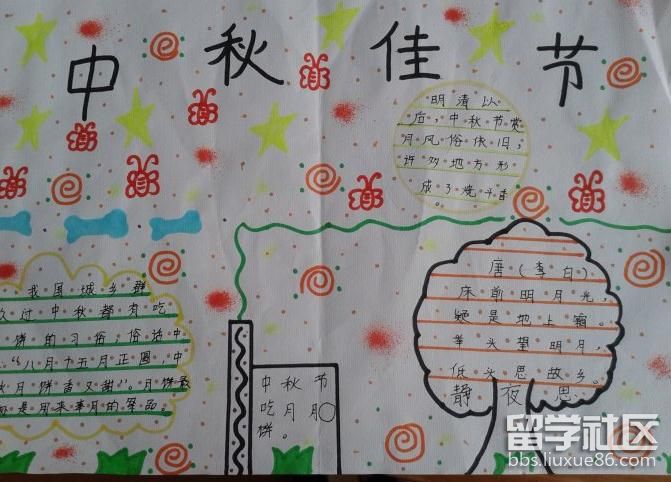 中秋佳节
明清以
后,中秋节赏
月风俗依旧;
许多地方形
成了烧斗香
。
我国城乡群
过中秋都有吃
饼的习俗,俗话中
“八月十五月正圆,中
秋月饼香又甜”。月饼最
是用来奉月的祭品。
中秋节
吃月月
饼。
唐(李白)
床前明月光,
疑是地上霜。
举头望明月,
低头思故乡。
静夜思
留学社区
bbs.liuxue86.com